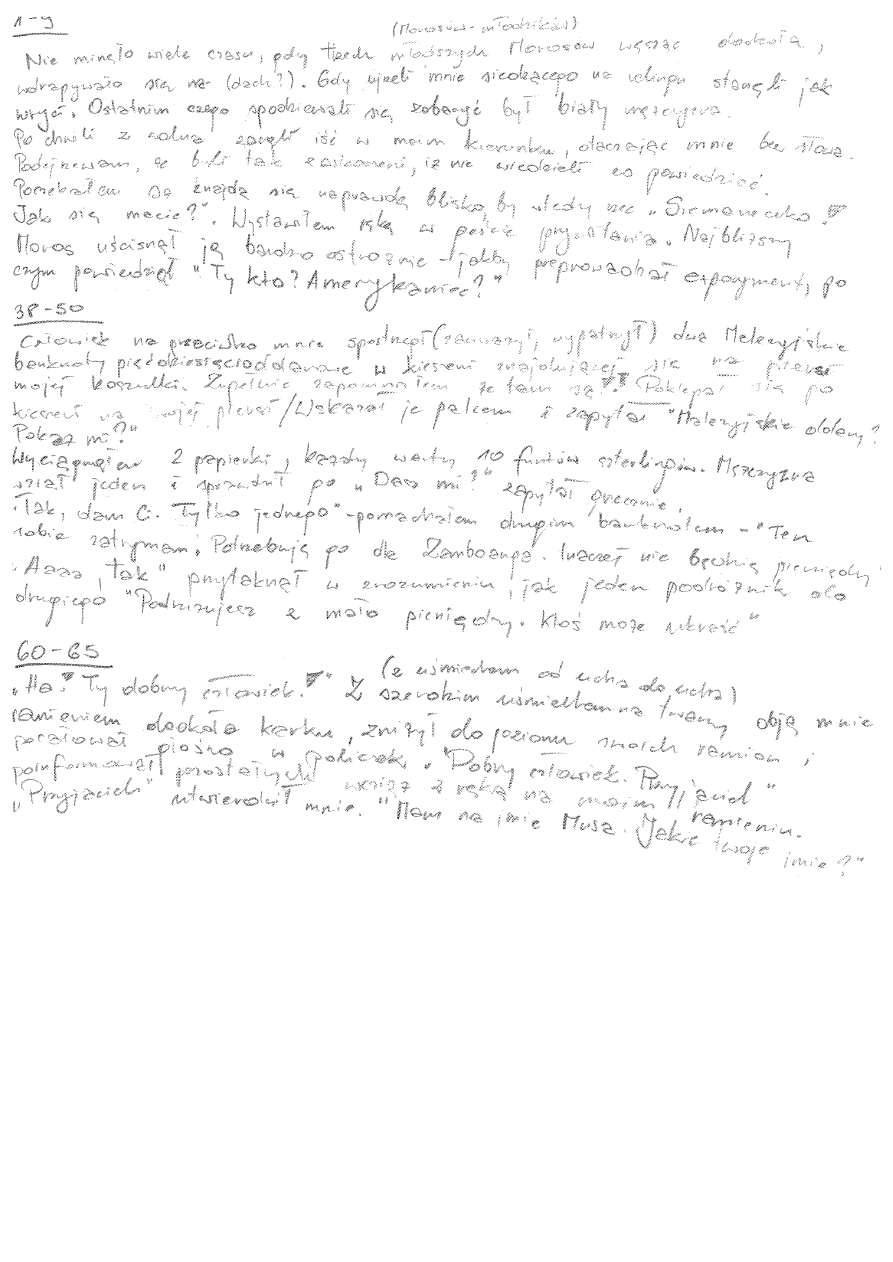 1-9
(Morosów-młodzików)
Nie minęło wiele czasu, gdy trzech młodszych Morosów węsząc dookoła,
wdrapywało się na (dach?). Gdy ujęli mnie siedzącego na stanęli jak
wryci. Ostatnim czego spodziewali się zobaczyć był biały mężczyzna.
Po chwili z wolna zaczęli iść w moim kierunku, otaczając mnie bez słowa.
Podejrzewam, że byli tak zaskoczeni, iż nie wiedzieli co powiedzieć.
Poczekałem aż znajdą się naprawdę blisko, by wtedy rzec "Siemaneczko!
Jak się macie?". Wystawiłem rękę w geście przywitania. Najbliższy
Moros uścisnął ją bardzo ostrożnie - jakby przeprowadzał experyment, po
czym powiedział "Ty kto? Amerykaniec?"
38-50
Człowiek na przeciwko mnie spostrzegł (zauważył, wypatrzył) dwa Malezyjskie
banknoty pięćdziesięciodolarowe w kieszeni znajdującej się na piersi
mojej koszulki. Zupełnie zapomniałem że tam są!! Poklepał się po
kieszeni na swojej piersi/Wskazał je palcem i zapytał "Malezyjskie dolary?
Pokaż mi?"
Wyciągnąłem 2 papierki, każdy warty 10 funtów szterlingów. Mężczyzna
wziął jeden i sprawdził go "Dasz mi?" zapytał grzecznie.
"Tak, dam Ci. Tylko jednego" - pomachałem drugim banknotem - "Ten
sobie zatrzymam! Potrzebuję go dla Zamboanga. Inaczej nie będzie pieniędzy"
"Aaaa, tak" przytaknął w zrozumieniu, jak jeden podróżnik do
drugiego "Podróżujesz z mało pieniędzy. Ktoś może ukraść"
60-65
(z uśmiechem od ucha do ucha)
"Ha! Ty dobry człowiek!" Z szerokim uśmiechem na twarzy objął mnie
ramieniem dookoła karku, zniżył do poziomu swoich ramion i
pocałował głośno w policzek. "Dobry człowiek. Przyjaciel"
poinformował pozostałych wciąż z ręką na moim ramieniu.
"Przyjaciel" utwierdził mnie. "Mam na imię Musa. Jakie twoje imię?"